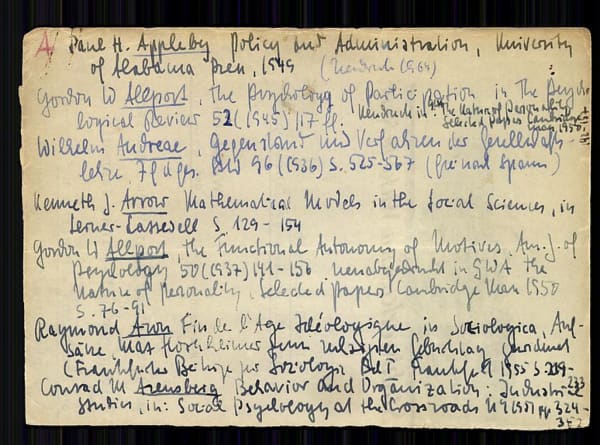 A Paul H. Appleby Policy and Administration, University
of Alabama Press, 1949 (Neudruck 1964)
Gordon W Allport, The Psychology of Participation in The Psycho-
logical Review 52 (1945) 117 ff. Neudruck in The Nature of Personality
Selected Papers Cambridge
Mass 1950,
Wilhelm Andreae, Gegenstand und Verfahren der Gesellschafts-
lehre, Zf d ges. Bd 96 (1936) S. 525-567 (Spann)
Kenneth J. Arrow Mathematical Models in the Social Sciences, in
Lerner-Lasswell S. 129-154
Gordon W Allport, the Functional Autonomy of Motives, Am. J. of
Psychology 50 (1937) 141-156 in GWA The
Nature of Personality, Selected Papers Cambridge Mass 1950
S. 76-91
Raymond Aron Fin de l'Age Idéologique, in Sociologica, Auf-
sätze Max Horkheimer zum Geburtstag gewidmet
(Frankfurter Beiträge zur Soziologie Bd I Frankfurt 1955 S 219-
233
Conrad M Arensberg Behavior and Organization: Industrial
Studies, in: Social Psychology at the Crossroads NY 1951 pp 324-
352